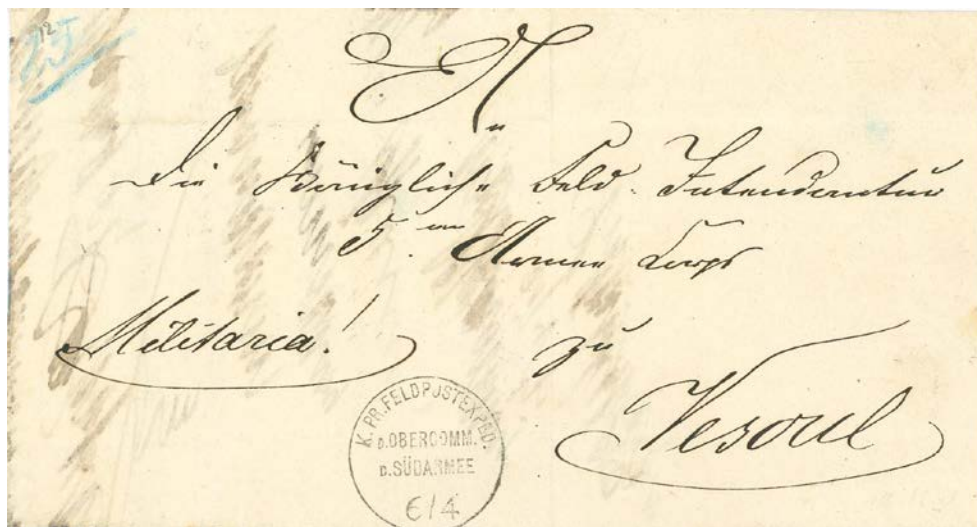 12
An
die Königliche Feld-Intendantur
5ten Armee Corps
Militaria!
zu
Vesoul
K. PR. FELDPOSTEXPED.
D.OBERCOMM.
D.SÜDARMEE
6/4